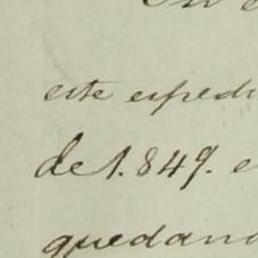 este esped
de 1.849. e
quedand